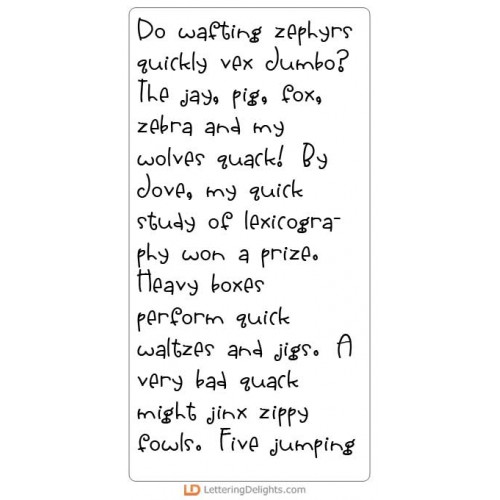 Do wafting zephyrs
quickly vex Jumbo?
The jay, pig, fox,
zebra and my
wolves quack! By
Jove, my quick
study of lexicogra-
phy won a prize.
Heavy boxes
perform quick
waltzes and jigs. A
very bad quack
might jinx zippy
fowls. Five jumping
LD LetteringDelights.com